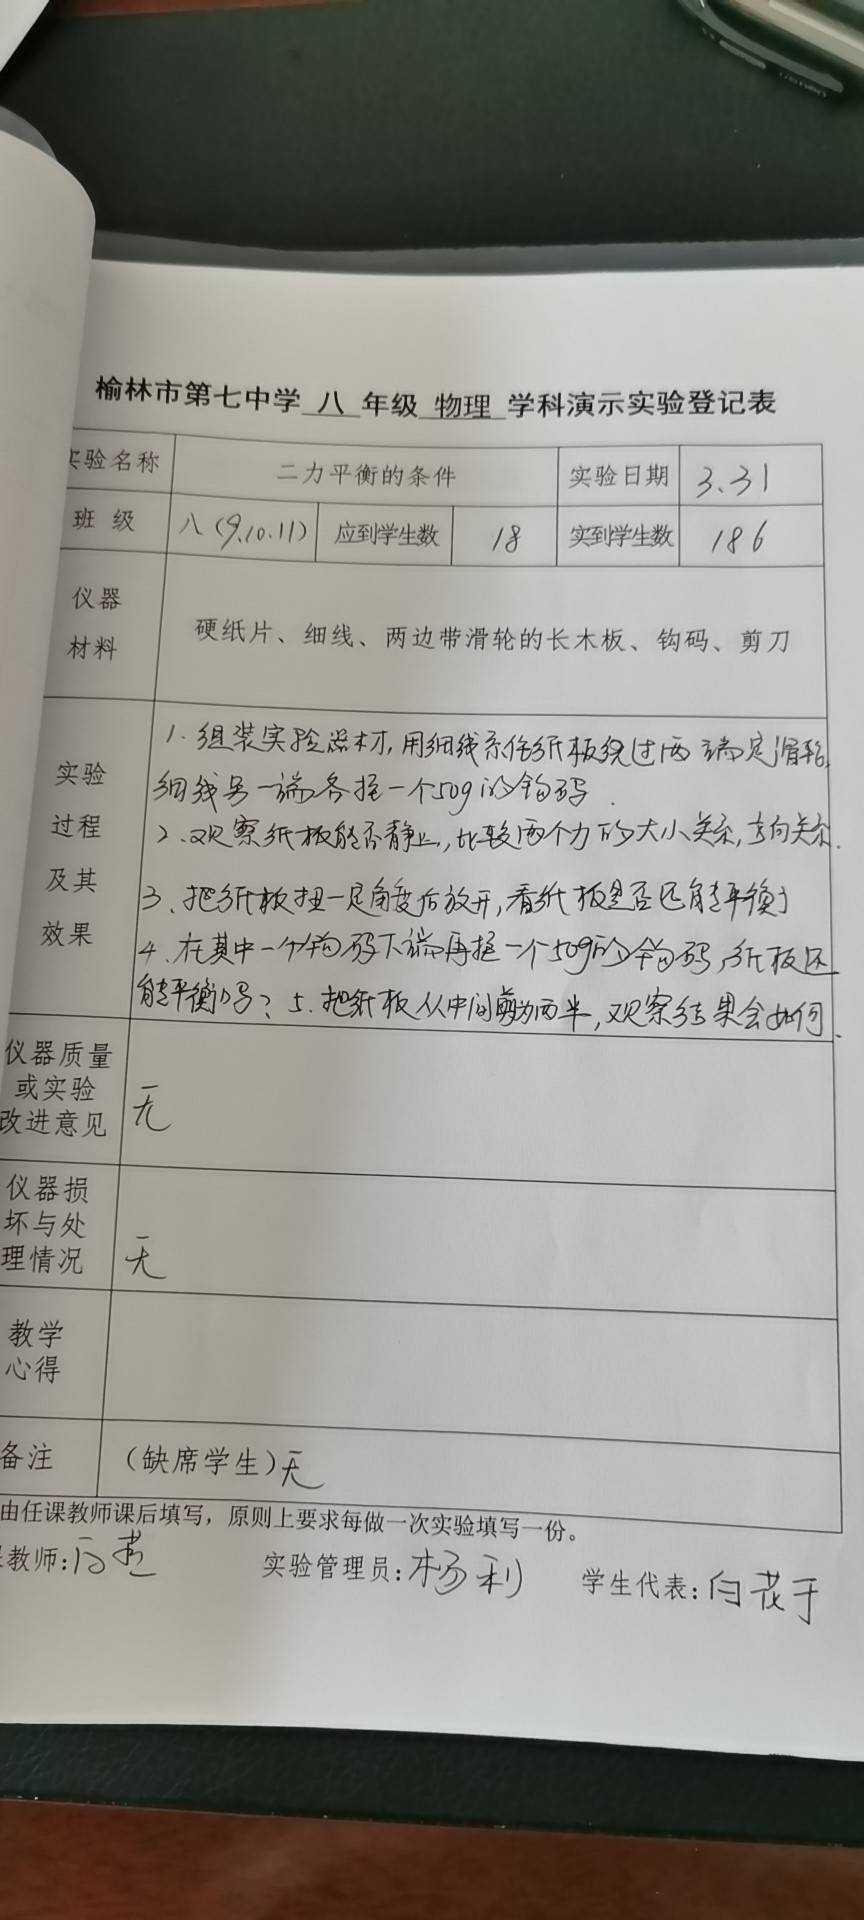 榆林市第七中学 八 年级 物理 学科演示实验登记表
实验名称 二力平衡的条件 实验日期 3.31
班 级 八(9.10.11) 应到学生数 18 实到学生数 186
仪器
材料
硬纸片、细线、两边带滑轮的长木板、钩码、剪刀
实验
过程
及其
效果
1. 组装实验器材,用细线系住纸板绕过两端定滑轮,
细线另一端各挂一个50g的钩码.
2、观察纸板能否静止,比较两个力的大小关系,方向关系.
3、把纸板扭一定角度后放开,看纸板是否还能平衡
4、在其中一个钩码下端再挂一个50g的钩码,纸板还
能平衡吗? 5. 把纸板从中间剪为两半,观察结果会如何.
仪器质量
或实验
改进意见
无
仪器损
坏与处
理情况
无
教学
心得
备注 (缺席学生)无
由任课教师课后填写,原则上要求每做一次实验填写一份。
教师: 实验管理员:杨利 学生代表:白花于